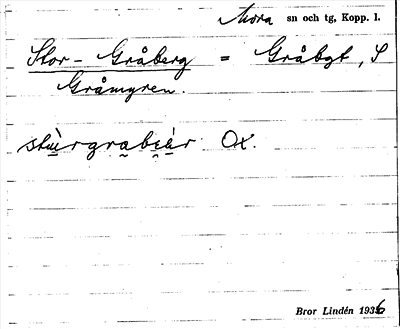 Mora sn och tg, Kopp. l.
Stor-Gråberg = Gråbgt, S
Gråmyren.
stùrgrabi̯èr Ox.
Bror Lindén 1936